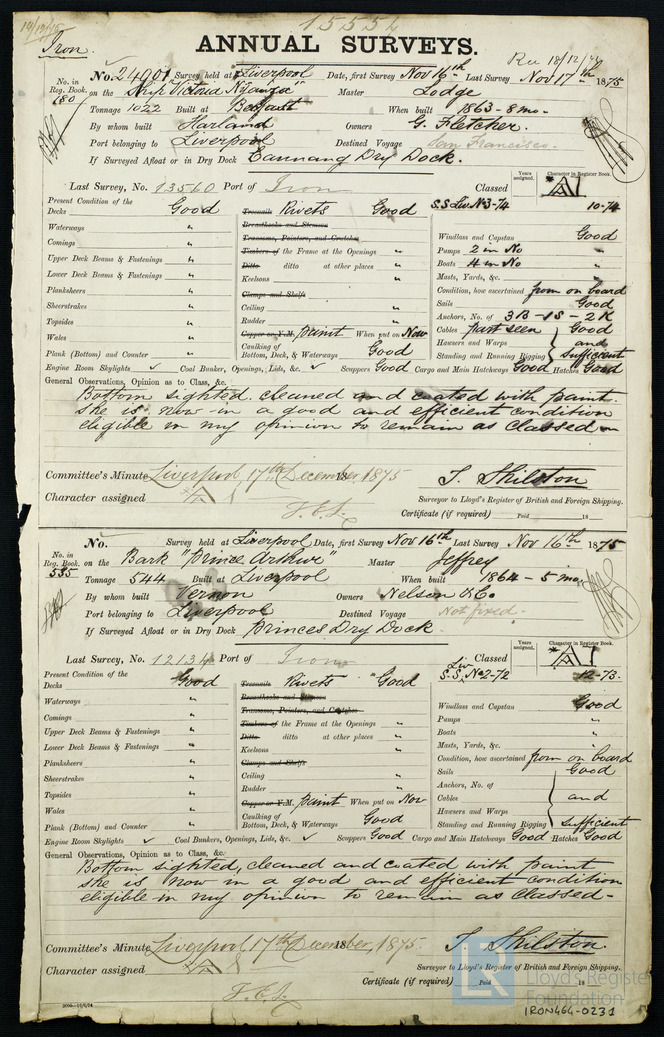 15554
Iron.
ANNUAL SURVEYS.
Rec 18/12/75
No. 24901 Survey held at Liverpool Date, first Survey Nov 16th Last Survey Nov 17th 1875
No. in Reg. Book. 180 on the Ship "Victoria Nyanza" Master Lodge
Tonnage 1022 Built at Belfast When built 1863 - 8 mo.
By whom built Harland Owners G. Fletcher.
Port belonging to Liverpool Destined Voyage San Francisco.
If Surveyed Afloat or in Dry Dock Canning Dry Dock.
Last Survey, No. 13560 Port of Iron Classed Years assigned. Character in Register Book.
*A1
S.S. Liv. No 3-74 10-74
Present Condition of the
Decks Good Treenails Rivets Good
Waterways " Breasthooks and Stemson
Comings " Transoms, Pointers, and Crutches
Upper Deck Beams & Fastenings " Timbers of the Frame at the Openings "
Lower Deck Beams & Fastenings " Ditto ditto at other places "
Planksheers " Keelsons "
Sheerstrakes " Clamps and Shelfs
Topsides " Ceiling "
Wales " Rudder "
Plank (Bottom) and Counter " Copper or Y.M. paint When put on Now
Caulking of Bottom, Deck, & Waterways Good
Windlass and Capstan Good
Pumps 2 in No "
Boats 4 in No "
Masts, Yards, &c. "
Condition, how ascertained from on board
Sails Good
Anchors, No. of 3B - 1S - 2K
Cables part seen Good
Hawsers and Warps and
Standing and Running Rigging Sufficient
Engine Room Skylights ✓ Coal Bunkers, Openings, Lids, &c. ✓ Scuppers Good Cargo and Main Hatchways Good Hatches Good
General Observations, Opinion as to Class, &c.
Bottom sighted, cleaned and coated with paint.
She is now in a good and efficient condition
eligible in my opinion to remain as classed
Committee's Minute Liverpool 17th December, 1875
T. Shilston
Character assigned
Surveyor to Lloyd's Register of British and Foreign Shipping.
Certificate (if required) Paid 18
No. Survey held at Liverpool Date, first Survey Nov 16th Last Survey Nov 16th 1875
No. in Reg. Book. 535 on the Bark "Prince Arthur" Master Jeffrey
Tonnage 544 Built at Liverpool When built 1864 - 5 mo.
By whom built Vernon Owners Nelson & Co
Port belonging to Liverpool Destined Voyage Not fixed.
If Surveyed Afloat or in Dry Dock Princes Dry Dock.
Last Survey, No. 12134 Port of Iron Classed Years assigned. Character in Register Book.
*A1
Liv S.S. No 2-72 12-73.
Present Condition of the
Decks Good Treenails Rivets Good
Waterways " Breasthooks and Stemson
Comings " Transoms, Pointers, and Crutches
Upper Deck Beams & Fastenings " Timbers of the Frame at the Openings "
Lower Deck Beams & Fastenings " Ditto ditto at other places "
Planksheers " Keelsons "
Sheerstrakes " Clamps and Shelfs
Topsides " Ceiling "
Wales " Rudder "
Plank (Bottom) and Counter " Copper or Y.M. paint When put on Nov
Caulking of Bottom, Deck, & Waterways Good
Windlass and Capstan Good
Pumps "
Boats "
Masts, Yards, &c. "
Condition, how ascertained from on board
Sails Good
Anchors, No. of
Cables and
Hawsers and Warps
Standing and Running Rigging Sufficient
Engine Room Skylights ✓ Coal Bunkers, Openings, Lids, &c. ✓ Scuppers Good Cargo and Main Hatchways Good Hatches Good
General Observations, Opinion as to Class, &c.
Bottom sighted, cleaned and coated with paint
She is now in a good and efficient condition
eligible in my opinion to remain as classed -
Committee's Minute Liverpool 17th December, 1875.
T. Shilston.
Character assigned
Surveyor to Lloyd's Register of British and Foreign Shipping.
Certificate (if required) Paid 18
LR Lloyd's Register Foundation
IRON464-0231